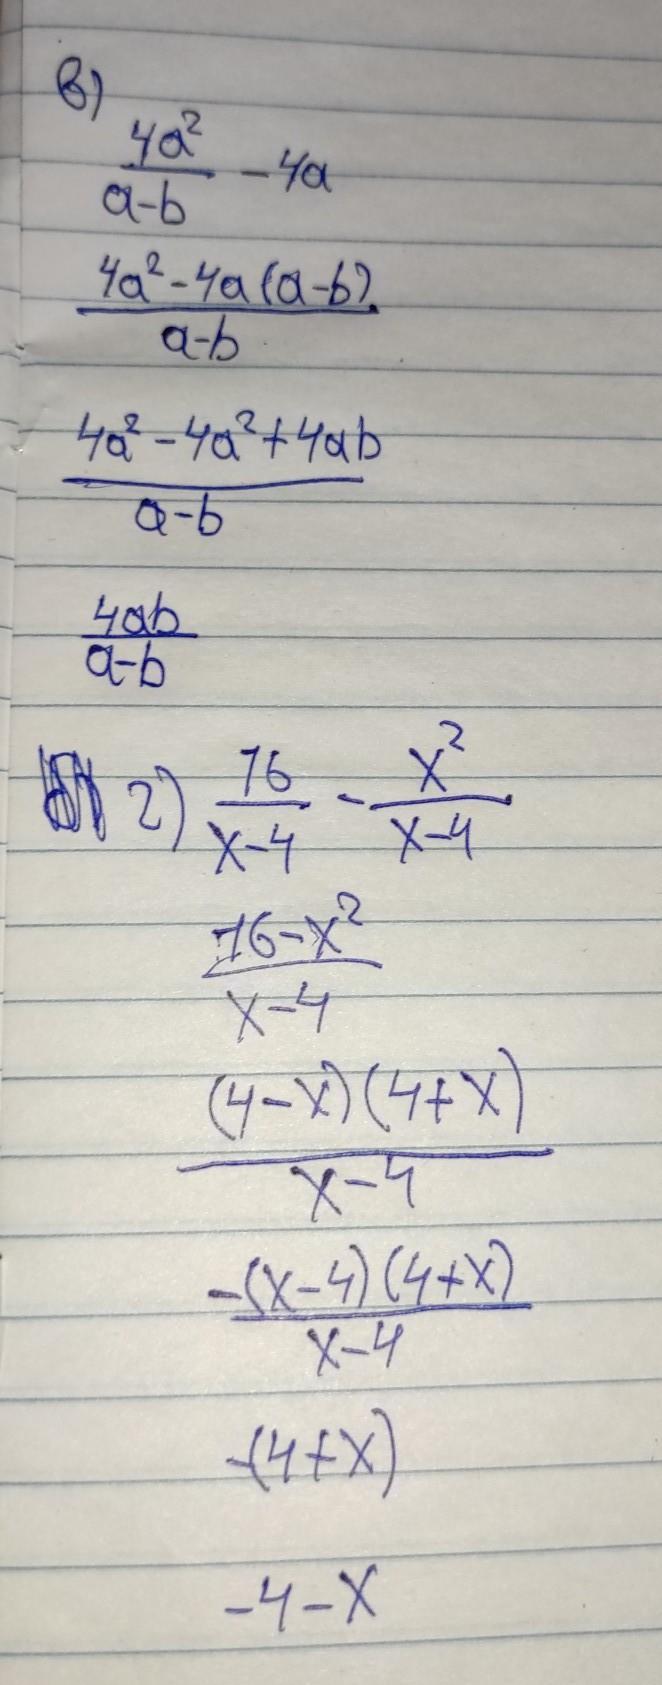 в)
4a²/(a-b) - 4a
(4a² - 4a(a-b))/(a-b)
(4a² - 4a² + 4ab)/(a-b)
4ab/(a-b)
2) 16/(x-4) - x²/(x-4)
(16-x²)/(x-4)
(4-x)(4+x)/(x-4)
-(x-4)(4+x)/(x-4)
-(4+x)
-4-x